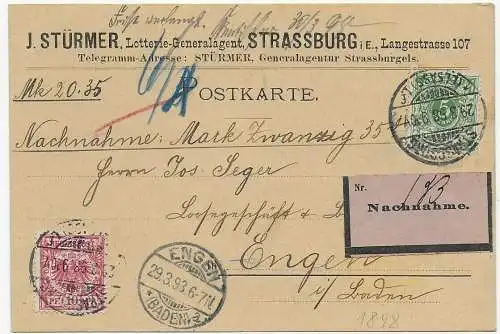 Frist verlangt. 30/3
J. STÜRMER, Lotterie-Generalagent, STRASSBURG i/E., Langestrasse 107
Telegramm-Adresse: STÜRMER, Generalagentur Strassburgels.
Mk 20.35
POSTKARTE.
Nachnahme: Mark Zwanzig 35
Herrn Jos. Seger
Losegeschäft &
Nr. 183
Nachnahme.
Engen
i/Baden
ENGEN
29.3.93.6-7N.
(BADEN)
5
1898